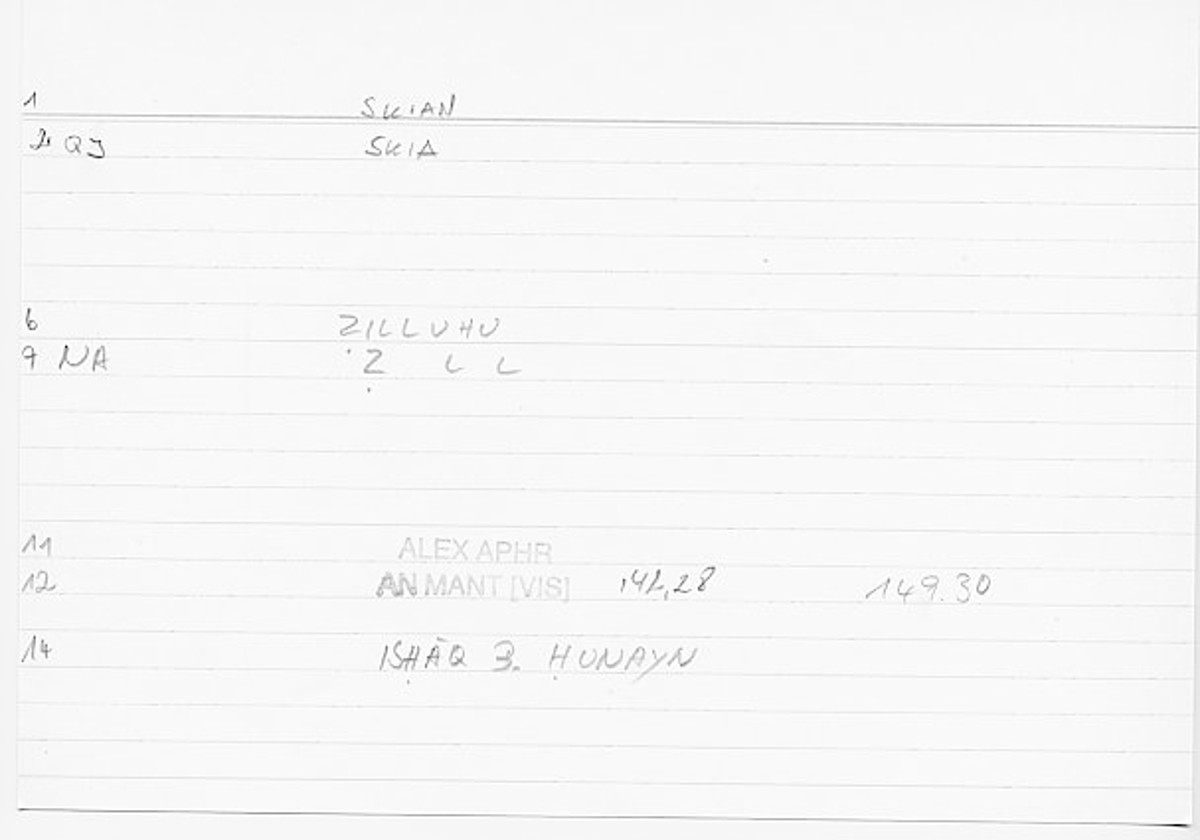 1 SKIAN
2 QJ SKIA
6 ẒILLUHU
9 NA Ẓ L L
11 ALEX APHR
12 AN MANT [VIS] 142,28 149.30
14 ISḤĀQ B. ḤUNAYN